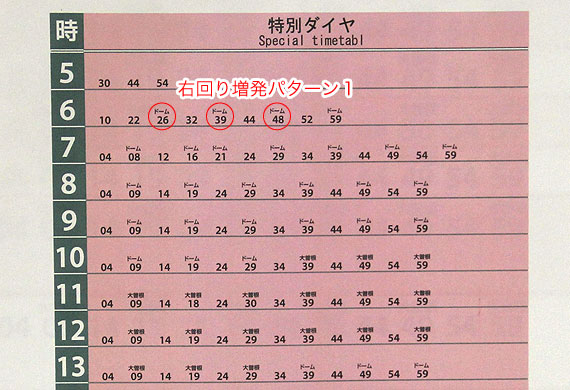 時 特別ダイヤ
Special timetabl
右回り増発パターン１
5 30 44 54
ドーム ドーム ドーム ドーム
6 10 22 26 32 39 44 48 52 59
ドーム ドーム ドーム ドーム ドーム ドーム ドーム
7 04 08 12 16 21 24 29 34 39 44 49 54 59
ドーム ドーム ドーム ドーム ドーム ドーム
8 04 09 14 19 24 29 34 39 44 49 54 59
ドーム ドーム ドーム ドーム ドーム ドーム
9 04 09 14 19 24 29 34 39 44 49 54 59
ドーム ドーム ドーム 大曽根 大曽根 大曽根
10 04 09 14 19 24 29 34 39 44 49 54 59
大曽根 大曽根 大曽根 大曽根 大曽根 大曽根
11 04 09 14 18 24 30 34 39 44 49 54 59
大曽根 大曽根 大曽根 大曽根 大曽根 大曽根
12 04 09 14 19 24 29 34 39 44 49 54 59
大曽根 大曽根 大曽根 大曽根 大曽根 大曽根
13 04 09 14 19 24 29 34 39 44 49 54 59